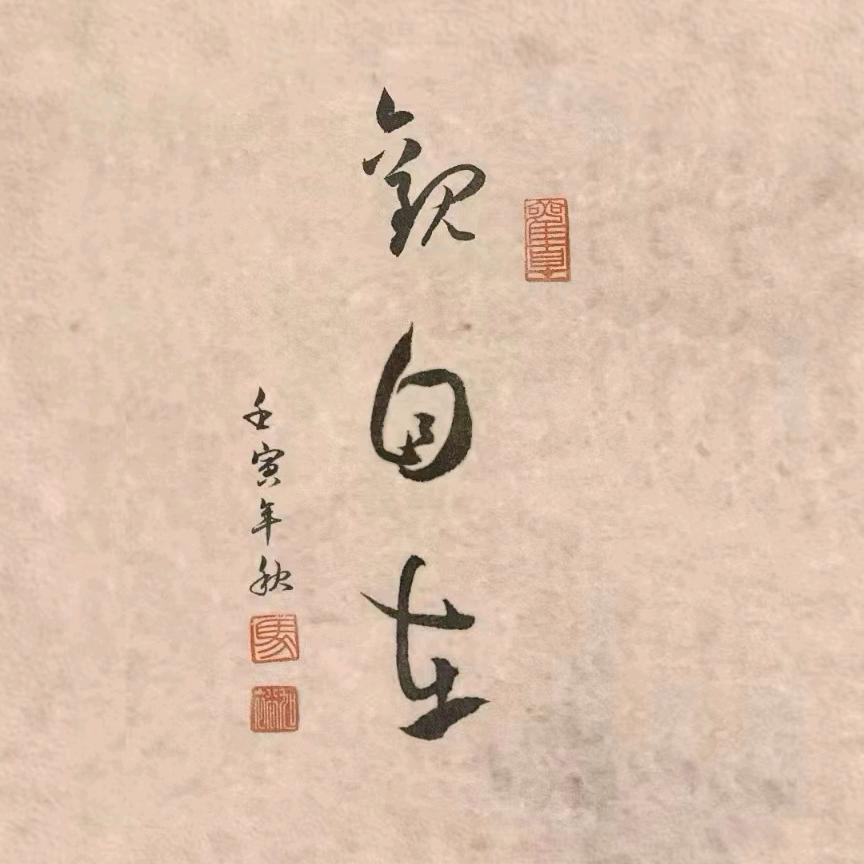 觀自在
壬寅年秋